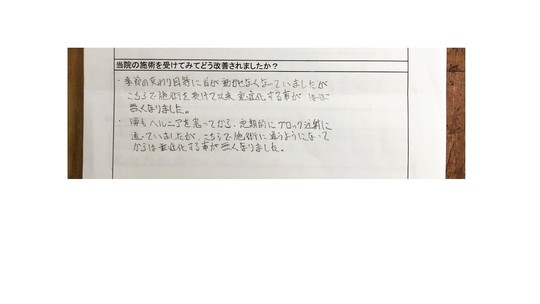 当院の施術を受けてみてどう改善されましたか？
・季節の変わり目等に首が動かせなくなっていましたが
こちらで施術を受けて以来、重症化する事がほぼ
無くなりました。
・腰もヘルニアを患ってから、定期的にブロック注射に
通っていましたが、こちらで施術に通うようになって
からは重症化する事が無くなりました。